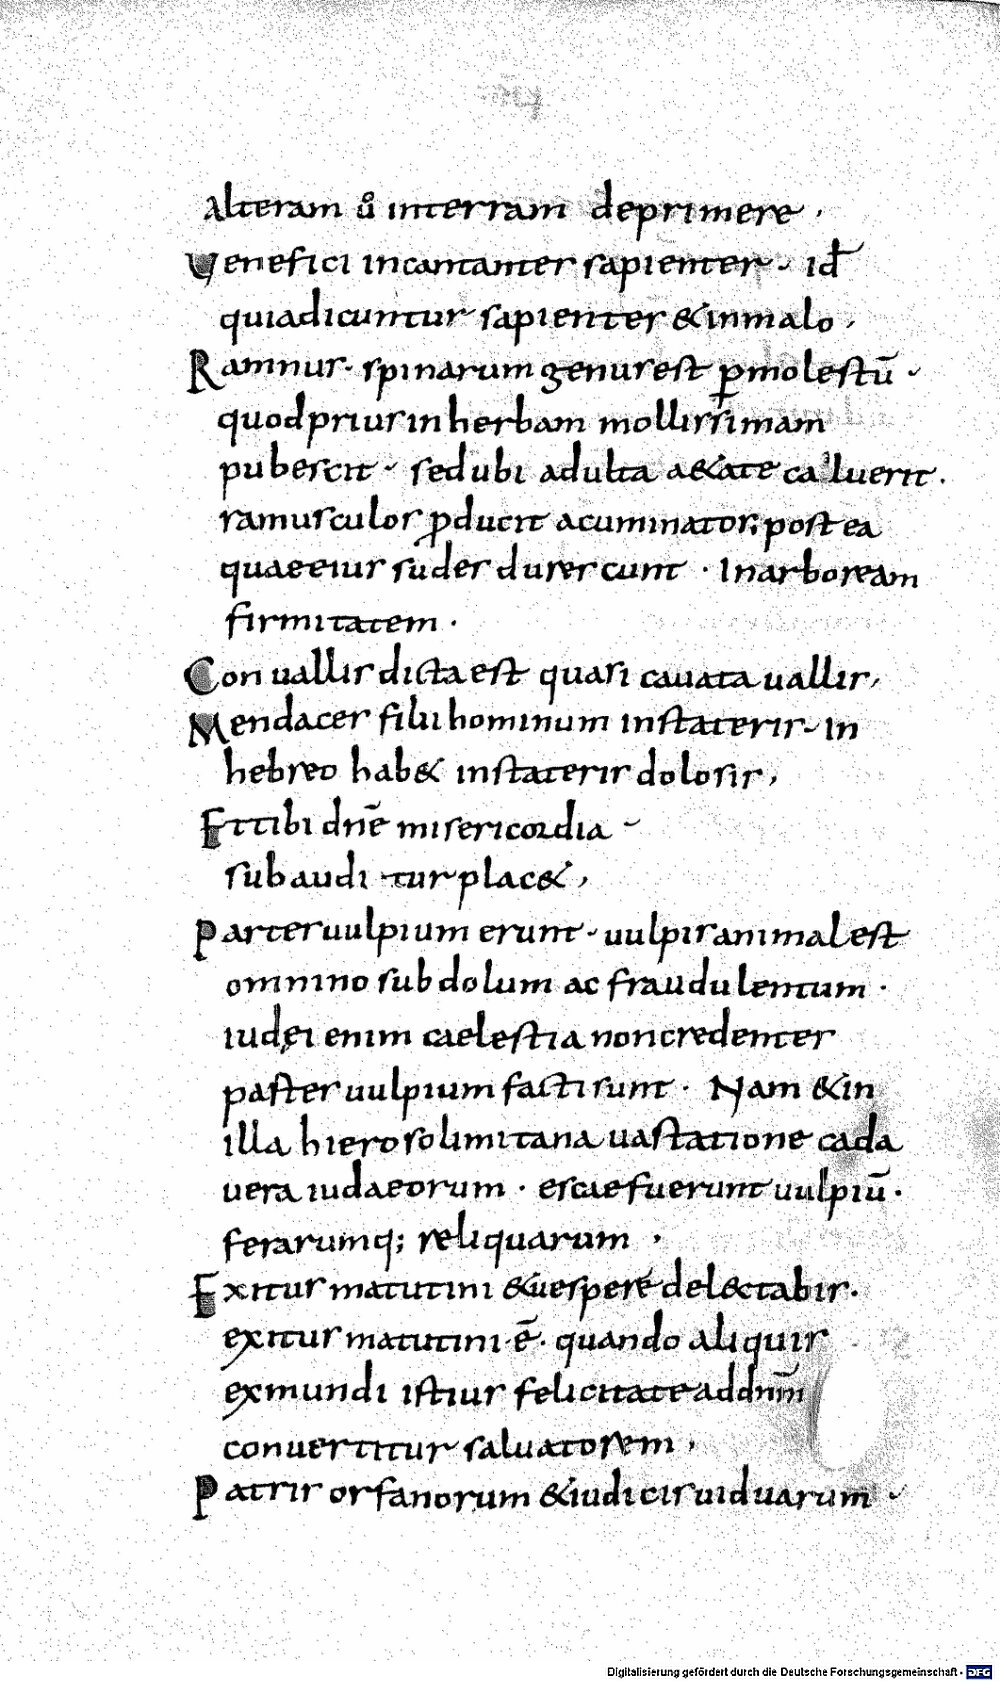 alteram uº interram deprimere,
Uenefici incantantes sapienter· id̄
quiadicuntur sapientes &inmalo,
Ramnus· spinarum genus est ꝑmolestū·
quodprius inherbam mollissimam
pubescit· sedubi adulta a&ate caluerit.
ramusculos ꝓducit acuminatos; postea
quaeeius sudes durescunt · Inarboream
firmitatem ·
Conuallis dicta est quasi cauata uallis,
Mendaces filii hominum instateris· in
hebreo hab& instateris dolosis,
Ettibi dn̄e misericordia
subaudi tur plac&,
Partes uulpium erunt· uulpis animal est
omnino subdolum ac fraudulentum ·
iudęi enim caelestia non credentes
pastes uulpium facti sunt · Nam &in
illa hierosolimitana uastatione cada
uera iudaeorum · escae fuerunt uulpiū·
ferarumq; reliquarum ·
Exitus matutini &uespere delectabis·
exitus matutini·ē· quando aliquis
exmundi istius felicitate addnm̄
conuertitur saluatorem,
Patris orfanorum &iudicis uiduarum
Digitalisierung gefördert durch die Deutsche Forschungsgemeinschaft · DFG